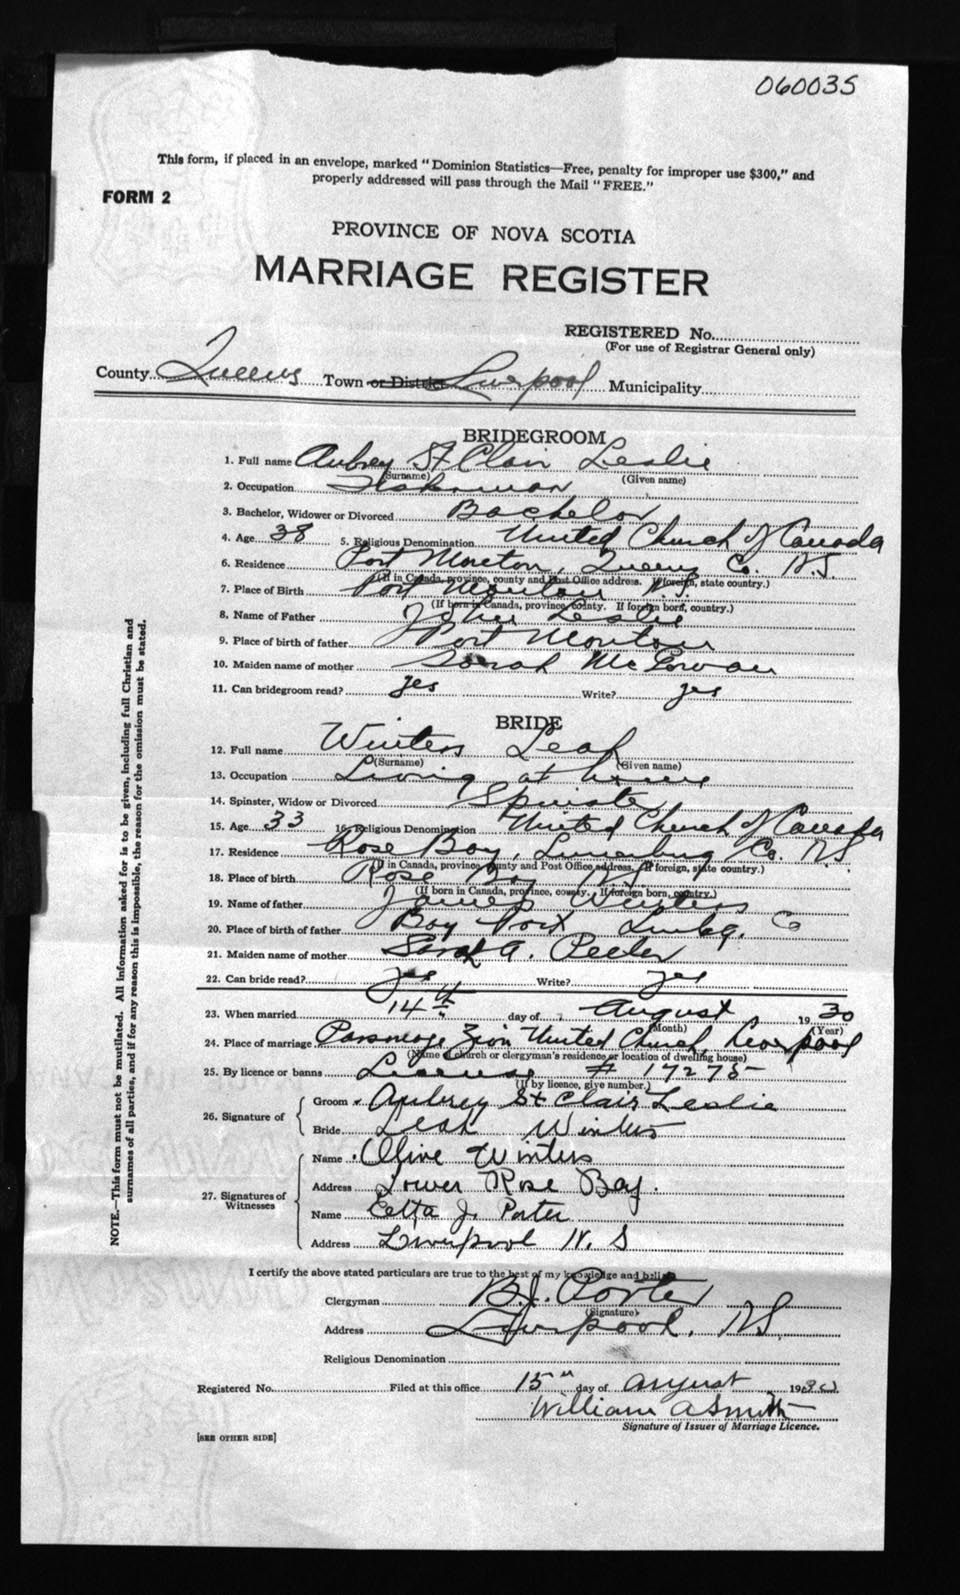 060035
This form, if placed in an envelope, marked "Dominion Statistics—Free, penalty for improper use $300," and
properly addressed will pass through the Mail "FREE."
FORM 2
PROVINCE OF NOVA SCOTIA
MARRIAGE REGISTER
REGISTERED No.
(For use of Registrar General only)
County Queens Town or District Liverpool Municipality
BRIDEGROOM
1. Full name Aubrey St Clair Leslie
(Surname) (Given name)
2. Occupation Fisherman
3. Bachelor, Widower or Divorced Bachelor
4. Age 38 5. Religious Denomination United Church of Canada
6. Residence Port Mouton, Queens Co. N.S.
(If in Canada, province, county and Post Office address. If foreign, state country.)
7. Place of Birth Port Mouton N.S.
(If born in Canada, province, county. If foreign born, country.)
8. Name of Father John Leslie
9. Place of birth of father Port Mouton
10. Maiden name of mother Sarah McGowan
11. Can bridegroom read? yes Write? yes
BRIDE
12. Full name Winters Leah
(Surname) (Given name)
13. Occupation Living at home
14. Spinster, Widow or Divorced Spinster
15. Age 33 16. Religious Denomination United Church of Canada
17. Residence Rose Bay, Lunenburg Co. NS
(If in Canada, province, county and Post Office address. If foreign, state country.)
18. Place of birth Rose Bay N.S.
(If born in Canada, province, county. If foreign born, country.)
19. Name of father James Winters
20. Place of birth of father Bay Port Lunbg. Co
21. Maiden name of mother Sarah A.
22. Can bride read? yes Write? yes
23. When married 14th day of August 1930
(Month) (Year)
24. Place of marriage Parsonage Zion United Church, Liverpool
(Name of church or clergyman's residence or location of dwelling house)
25. By licence or banns License # 17275
(If by licence, give number.)
26. Signature of
Groom Aubrey St Clair Leslie
Bride Leah Winters
27. Signatures of Witnesses
Name Olive Winters
Address Lower Rose Bay.
Name Etta J. Porter
Address Liverpool N. S
I certify the above stated particulars are true to the best of my knowledge and belief.
Clergyman B.J. Porter
(Signature)
Address Liverpool, NS.
Religious Denomination
Registered No. Filed at this office 15th day of August 1930
William A Smith
Signature of Issuer of Marriage Licence.
[SEE OTHER SIDE]
NOTE.—This form must not be mutilated. All information asked for is to be given, including full Christian and
surnames of all parties, and if for any reason this is impossible, the reason for the omission must be stated.